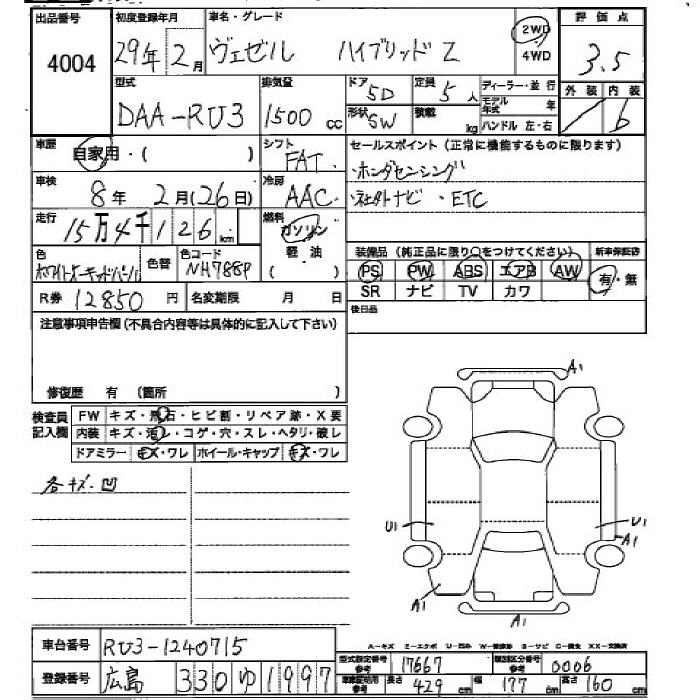 出品番号 初度登録年月 車名・グレード 評価点
4004 29年2月 ヴェゼル ハイブリッド Z 2WD 4WD 3.5
型式 排気量 ドア 定員 ディーラー・並行 外装 内装
DAA-RU3 1500cc 5D 5人 モデル年式 年 / 6
形状 SW 積載 kg ハンドル 左・右
車歴 自家用・( ) シフト FAT セールスポイント(正常に機能するものに限ります)
・ホンダセンシング
車検 8年2月(26日) 冷房 AAC
・社外ナビ ・ETC
走行 15万4千126km 燃料 ガソリン 軽油 ( )
装備品(純正品に限り〇をつけてください) 新車保証書
色 ホワイトオーキッドパール 色替 色コード NH788P
PS PW ABS エアB AW 有・無
R券 12850円 名変期限 月 日
SR ナビ TV カワ
注意事項申告欄(不具合内容等は具体的に記入して下さい) 後日品
修復歴 有 (箇所 )
検査員記入欄 FW キズ・飛石・ヒビ割・リペア跡・X要
内装 キズ・汚レ・コゲ・穴・スレ・ヘタリ・破レ
ドアミラー キズ・ワレ ホイール・キャップ キズ・ワレ
各キズ・凹
A1
U1
U1
A1
A1
A1
A-キズ E-エクボ U-凹み W-補修跡 S-サビ C-腐食 XX-交換済
車台番号 RU3-1240715
登録番号 広島 330 ゆ 1997
型式指定番号参考 17667 類別区分番号参考 0006
車庫証明用参考 長さ 429cm 幅 177cm 高さ 160cm